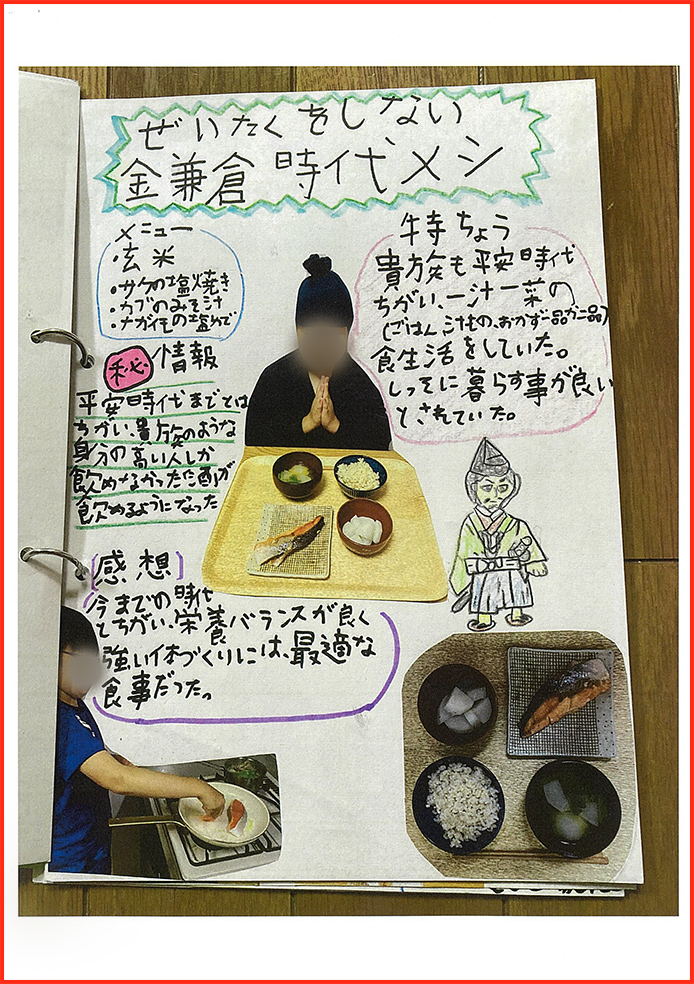 ぜいたくをしない
鎌倉時代メシ
メニュー
玄米
・サケの塩焼き
・カブのみそ汁
・ナガイモの塩ゆで
特ちょう
貴族も平安時代
ちがい、一汁一菜の
(ごはん、汁もの、おかず一品か二品)
食生活をしていた。
しっそに暮らす事が良い
とされていた。
秘情報
平安時代までとは
ちがい、貴族のような
身分の高い人しか
飲めなかったお酒が
飲めるようになった
感想
今までの時代
とちがい、栄養バランスが良く
強い体づくりには、最適な
食事だった。